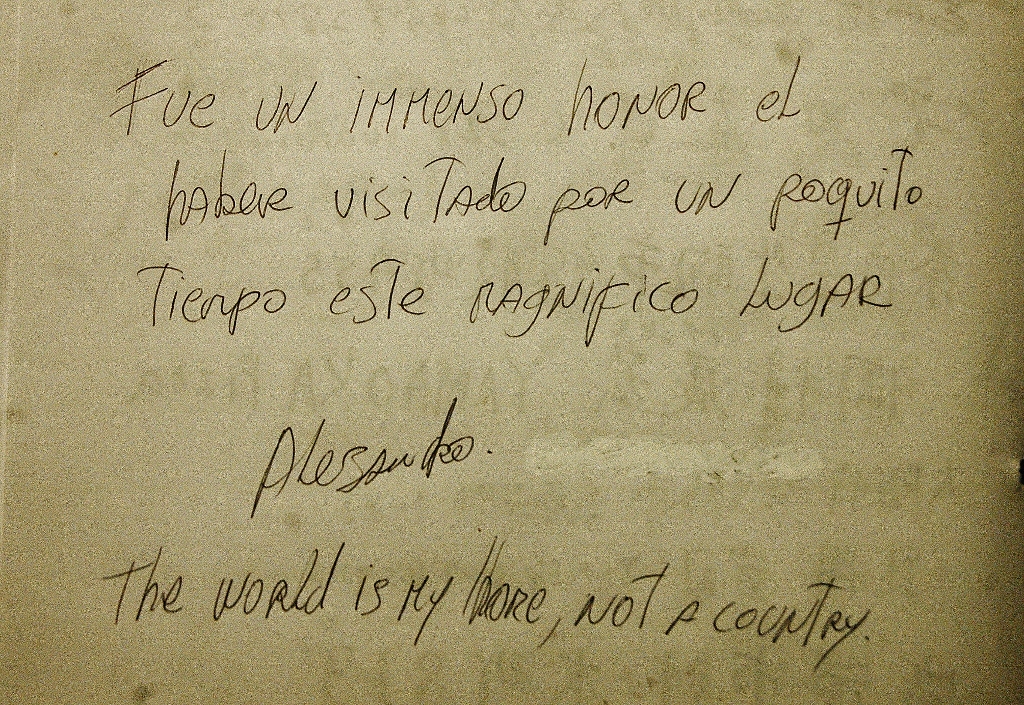 Fue un immenso honor el
haber visitado por un poquito
tiempo este magnifico lugar
Alessandro.
The world is my home, not a country.